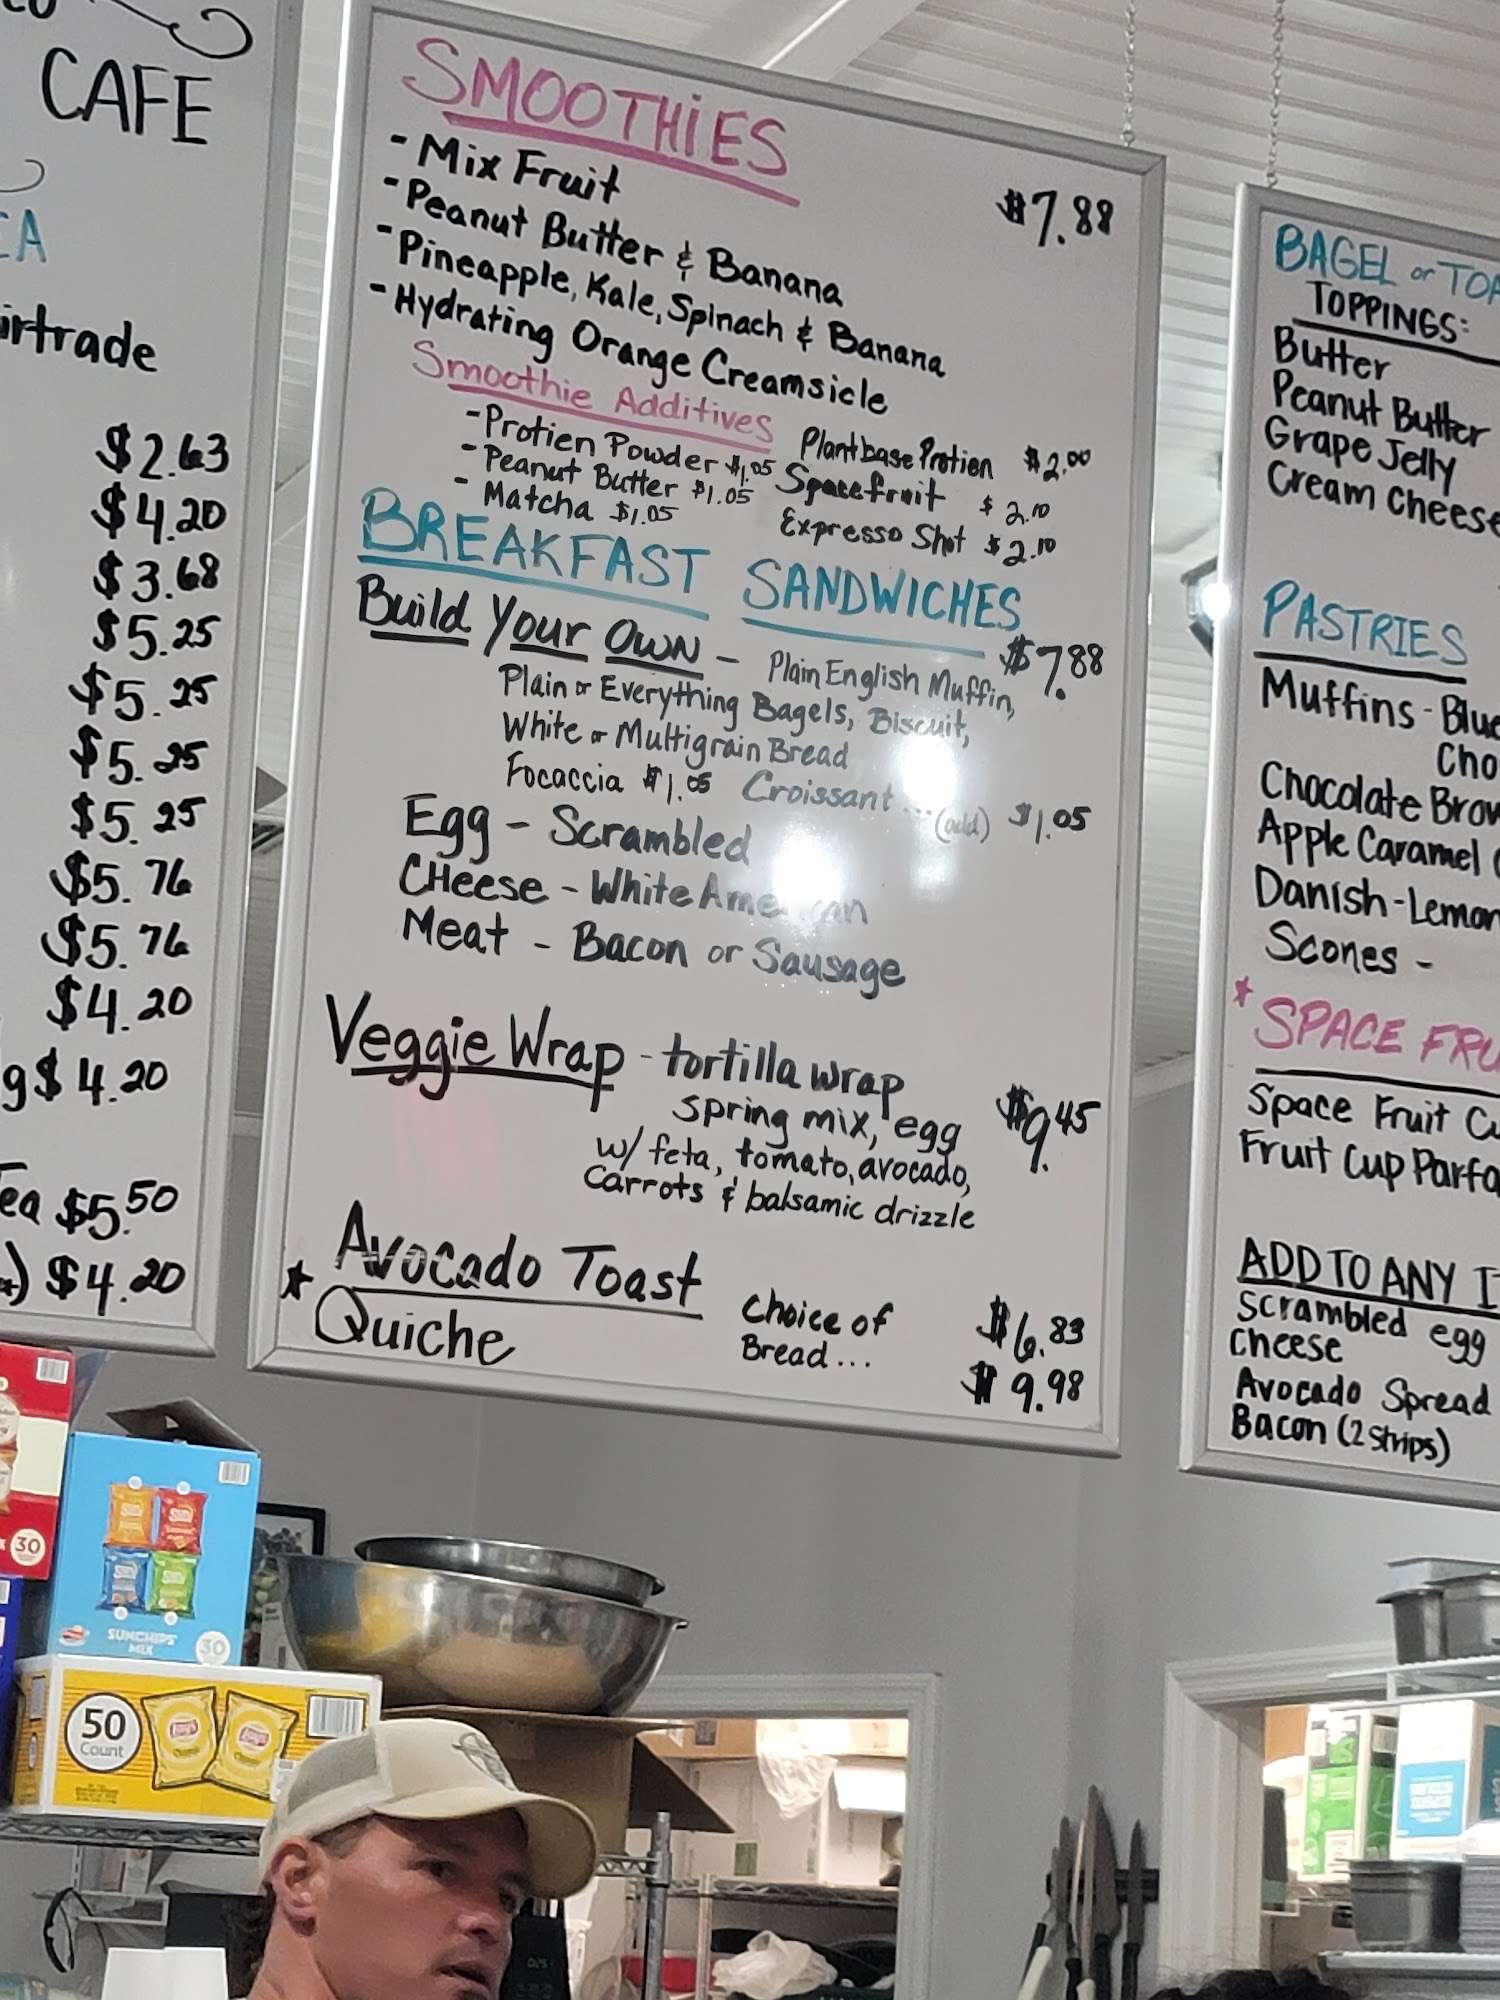 CAFE
EA
irtrade
$2.63
$4.20
$3.68
$5.25
$5.25
$5.25
$5.25
$5.76
$5.76
$4.20
g $4.20
Tea $5.50
$4.20
SMOOTHiES
- Mix Fruit $7.88
- Peanut Butter & Banana
- Pineapple, Kale, Spinach & Banana
- Hydrating Orange Creamsicle
Smoothie Additives
- Protien Powder $1.05 Plantbase Protien $2.00
- Peanut Butter $1.05 Spacefruit $2.10
- Matcha $1.05 Expresso Shot $2.10
BREAKFAST SANDWICHES
Build Your Own - Plain English Muffin, $7.88
Plain or Everything Bagels, Biscuit,
White or Multigrain Bread
Focaccia $1.05 Croissant... (add) $1.05
Egg - Scrambled
CHeese - White American
Meat - Bacon or Sausage
Veggie Wrap - tortilla wrap
spring mix, egg $9.45
w/ feta, tomato, avocado,
Carrots & balsamic drizzle
Avocado Toast Choice of $6.83
Bread...
* Quiche $9.98
BAGEL or TOA
TOPPINGS:
Butter
Peanut Butter
Grape Jelly
Cream Cheese
PASTRIES
Muffins - Blue
Cho
Chocolate Brow
Apple Caramel
Danish - Lemon
Scones -
* SPACE FRU
Space Fruit Cu
Fruit Cup Parfa
ADD TO ANY I
Scrambled egg
Cheese
Avocado Spread
Bacon (2 strips)
30
SUNCHIPS
MIX
30
50
Count
Lay's
Lay's